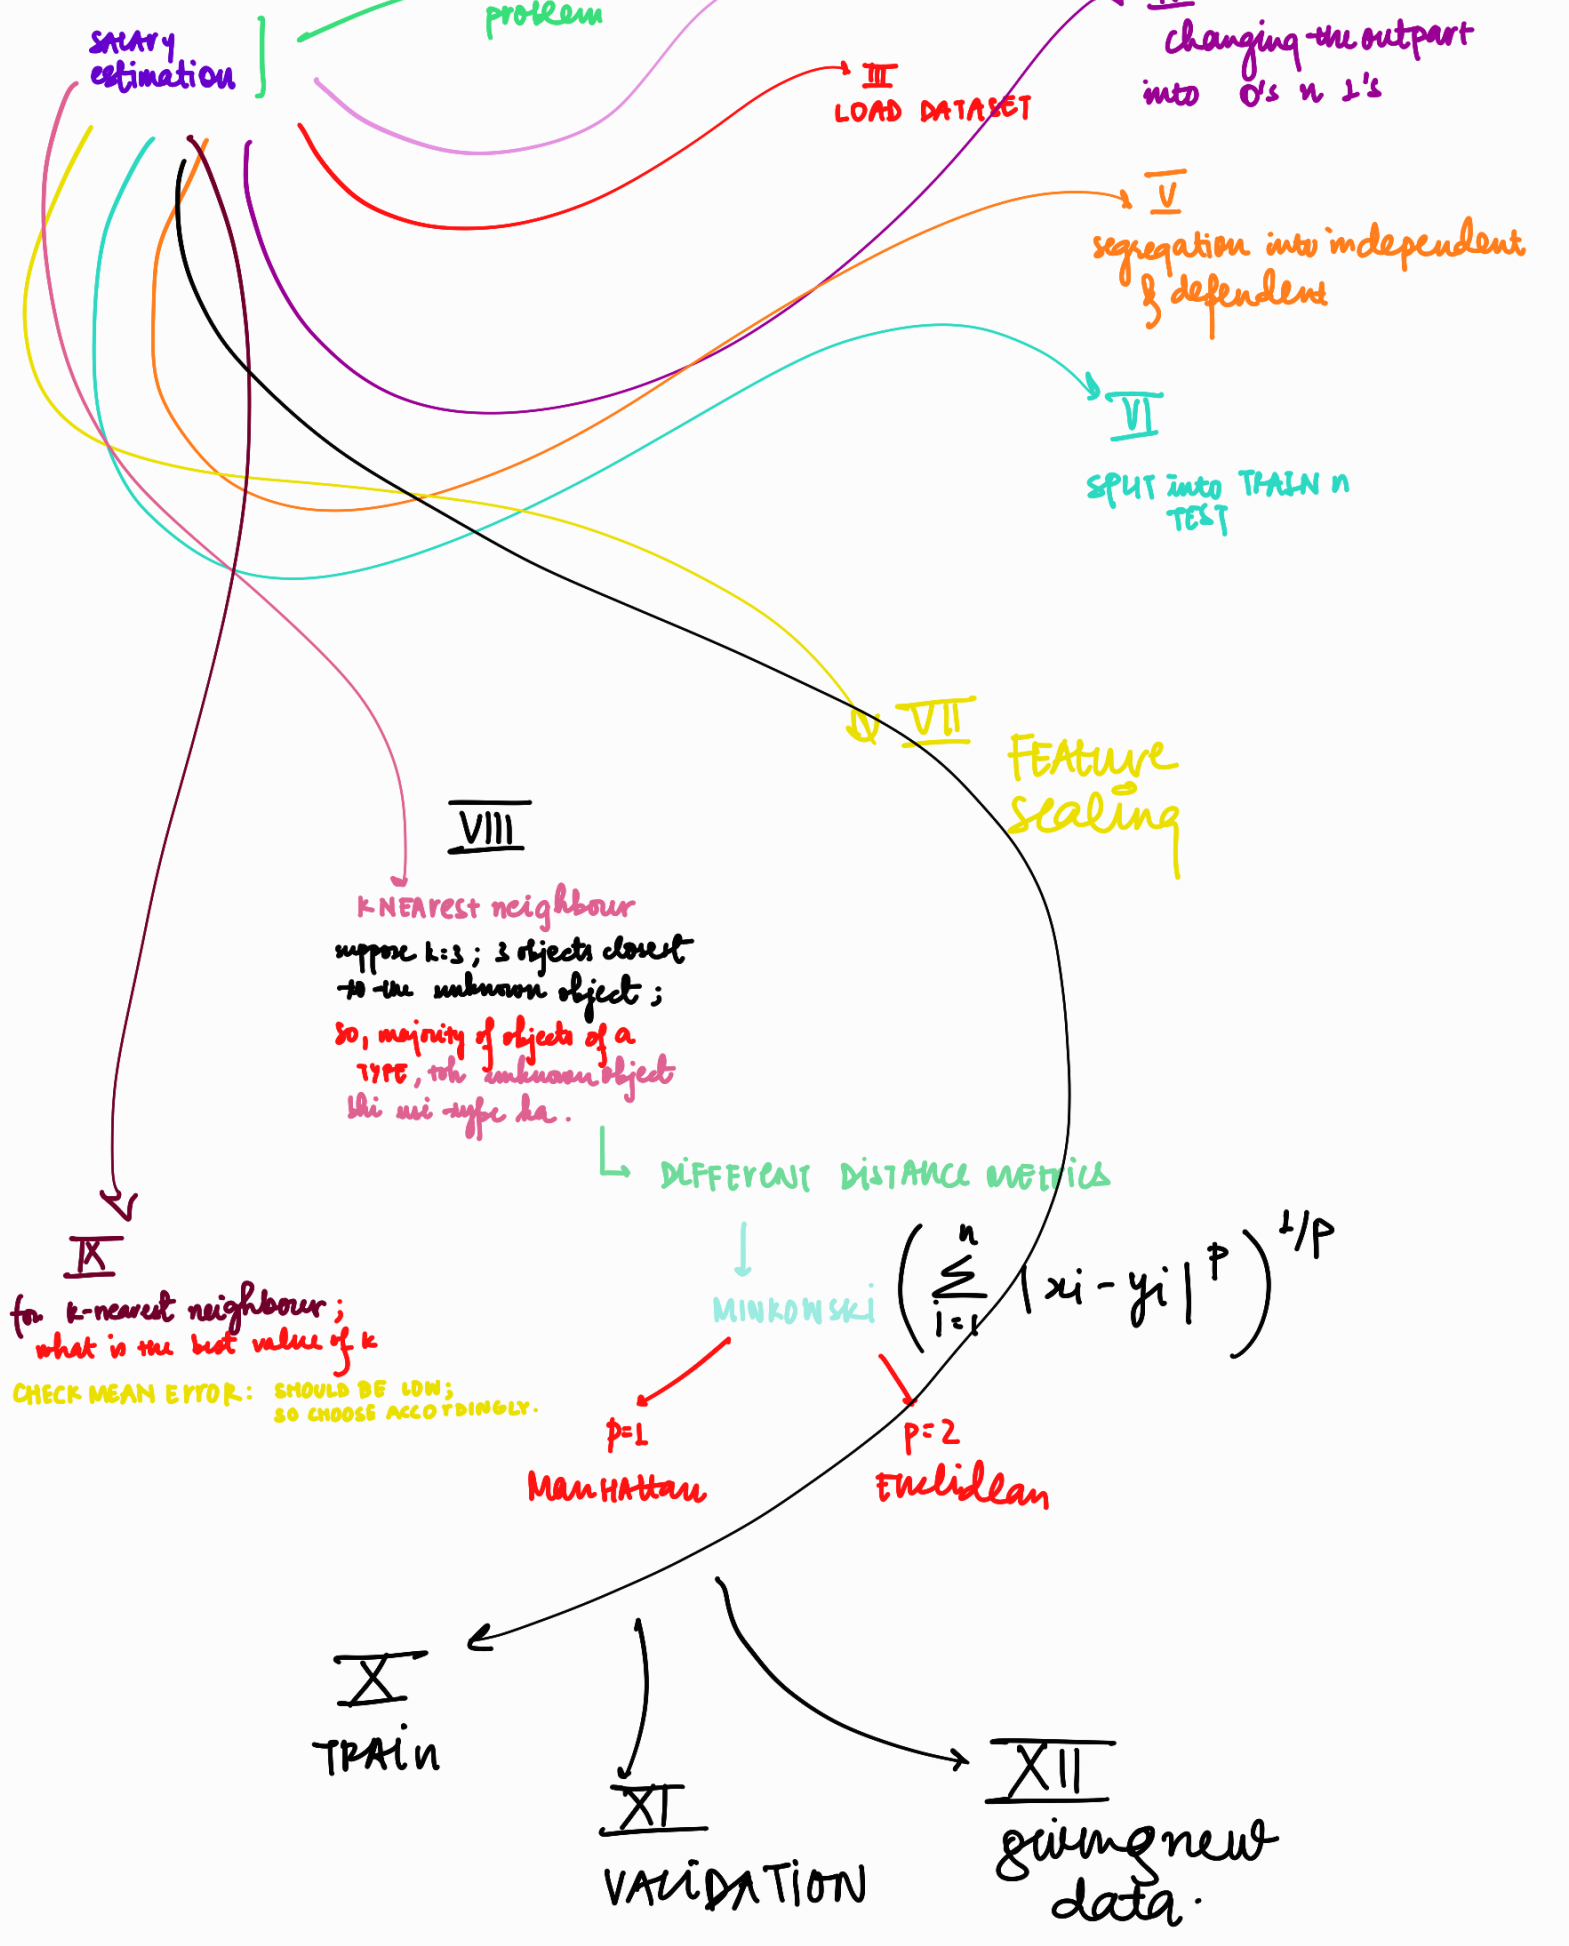 problem
SALARY
estimation
changing the outpart
into 0's n 1's
III
LOAD DATASET
V
segregation into independent
& dependent
VI
SPLIT into TRAIN n
TEST
VII
FEAture
scaling
VIII
K NEArest neighbour
suppose k=3; 3 objects closest
to the unknown object;
so, majority of objects of a
TYPE, toh unknown object
bhi usi type ka.
DIFFERENT DISTANCE METRICS
MINKOWSKI
(∑ i=1 n |xi - yi|^p)^1/p
IX
for k-nearest neighbour;
what is the best value of k
CHECK MEAN ERROR: SHOULD BE LOW;
SO CHOOSE ACCORDINGLY.
p=1
ManHAttan
p=2
Euclidean
X
TRAin
XI
VALiDATION
XII
giving new
data.